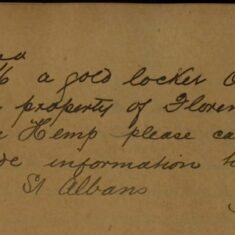 a gold locket
property of Floren
Hemp please ca
information
St Albans